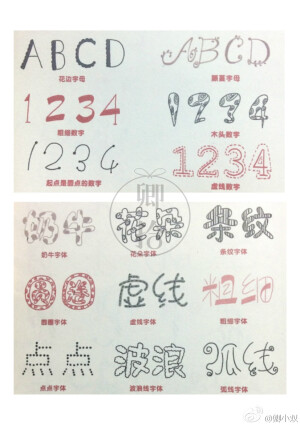 ABCD ABCD
花边字母 藤蔓字母
1234 1234
粗细数字 木头数字
1234 1234
起点是圆点的数字 虚线数字
奶牛 花朵 条纹
奶牛字体 花朵字体 条纹字体
圈圈 虚线 粗细
圈圈字体 虚线字体 粗细字体
点点 波浪 弧线
点点字体 波浪线字体 弧线字体
@卿小奴